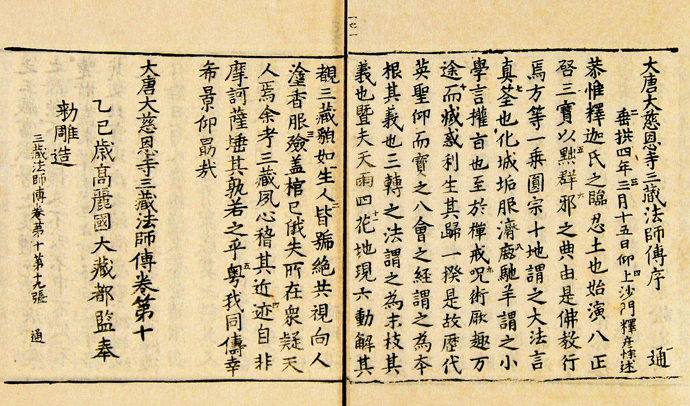 大唐大慈恩寺三藏法師傳序 通
垂拱四年三月十五日仰上沙門釋彦悰述
恭惟釋迦氏之臨忍土也始演八正
啓三寶以黜群邪之典由是佛教行
焉方等一乘圓宗十地謂之大法言
真筌也化城垢服濟鹿馳羊謂之小
學言權旨也至於禪戒呪術厥趣万
途而滅惑利生其歸一揆是故歷代
英聖仰而寶之八會之經謂之為本
根其義也三轉之法謂之為末枝其
義也暨夫天雨四花地現六動解其
觀三藏貌如生人皆號絕共視向人
塗香服殮蓋棺已俄失所在衆疑天
人焉余考三藏夙心稽其近迹自非
摩訶薩埵其孰若之乎粤我同儔幸
希景仰勗哉
大唐大慈恩寺三藏法師傳卷第十
乙巳歲高麗國大藏都監奉
勑雕造
三藏法師傳卷第十第十九張 通